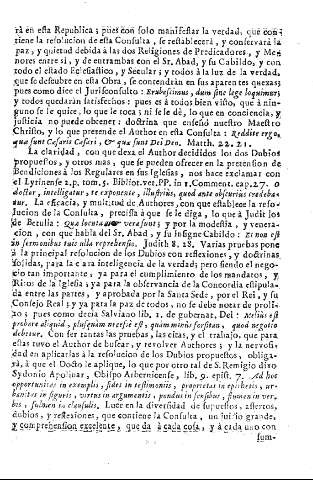 rá en esta Republica; pues con solo manifestar la verdad, que con-
tiene la resolucion de esta Consulta, se restablecerá, y conservará la
paz, y quietud debida á las dos Religiones de Predicadores, y Me-
nores entre si, y de entrambas con el Sr. Abad, y su Cabildo, y con
todo el estado Eclesiastico, y Secular; y todos á la luz de la verdad,
que se descubre en esta Obra, se contendrán en sus aparentes quexas;
pues como dice el Jurisconsulto: Erubescimus, dum sine lege loquimur;
y todos quedarán satisfechos: pues es á todos bien visto, que á nin-
guno se le quite, lo que le toca; ni se le dé, lo que en conciencia, y
justicia no puede obtener: doctrina que enseñó nuestro Maestro
Christo, y lo que pretende el Author en esta Consulta: Reddite ergo,
quæ sunt Cæsaris Cæsari, & quæ sunt Dei Deo. Matth. 22. 21.
La claridad, con que dexa el Author decididos los dos Dubios
propuestos, y otros mas, que se pueden ofrecer en la pretension de
Bendiciones á los Regulares en sus Iglesias, nos hace exclamar con
el Lyrinense 2. p. tom. 5. Bibliot. vet. PP. in 1. Comment. cap. 27. O
doctor, intelligatur, te exponente, illustriùs, quod ante obscuriùs credeba-
tur. La eficacia, y multitud de Authores, con que establece la reso-
lucion de la Consulta, precissa á que se le diga, lo que á Judit los
de Betulia: Quæ locuta es vera sunt; y por la modestia, y venera-
cion, con que habla del Sr. Abad, y su insigne Cabildo: Et non est
in sermonibus tuis ulla reprehensio. Judith 8. 28. Varias pruebas pone
á la principal resolucion de los Dubios con reflexiones, y doctrinas
solidas, para la clara inteligencia de la verdad; pero siendo el nego-
cio tan importante, ya para el cumplimiento de los mandatos, y
Ritos de la Iglesia; ya para la observancia de la Concordia estipula-
da entre las partes, y aprobada por la Santa Sede, por el Rei, y su
Consejo Real; y ya para la paz de todos, no se debe notar de prolif-
so; pues como decia Salviano lib. 1. de gubernat. Dei: Meliùs est
probare aliquid, plusquam necesse est, quam minùs forsitan, quod negotio
debetur. Con ser tantas las pruebas, las citas, y el trabajo, que para
estas tuvo el Author de buscar, y resolver Authores; y la nerviosi-
dad en aplicarlas á la resolucion de los Dubios propuestos, obliga-
rá, á que el Docto le aplique, lo que por otro tal de S. Remigio dixo
Sydonio Apolinar, Obispo Arbernicense, lib. 9. epist. 7. Ad hoc
opportunitas in exemplis, fides in testimoniis, proprietas in epithetis, ur-
banitas in figuris, virtus in argumentis, pondus in sensibus, flumen in ver-
bis, fulmen in clausulis. Luce en la diversidad de supuestos, assertos,
dubios, y reflexiones, que contiene la Consulta, un juicio grande,
y comprehension excelente, que da á cada cosa, y á cada uno con
sum-